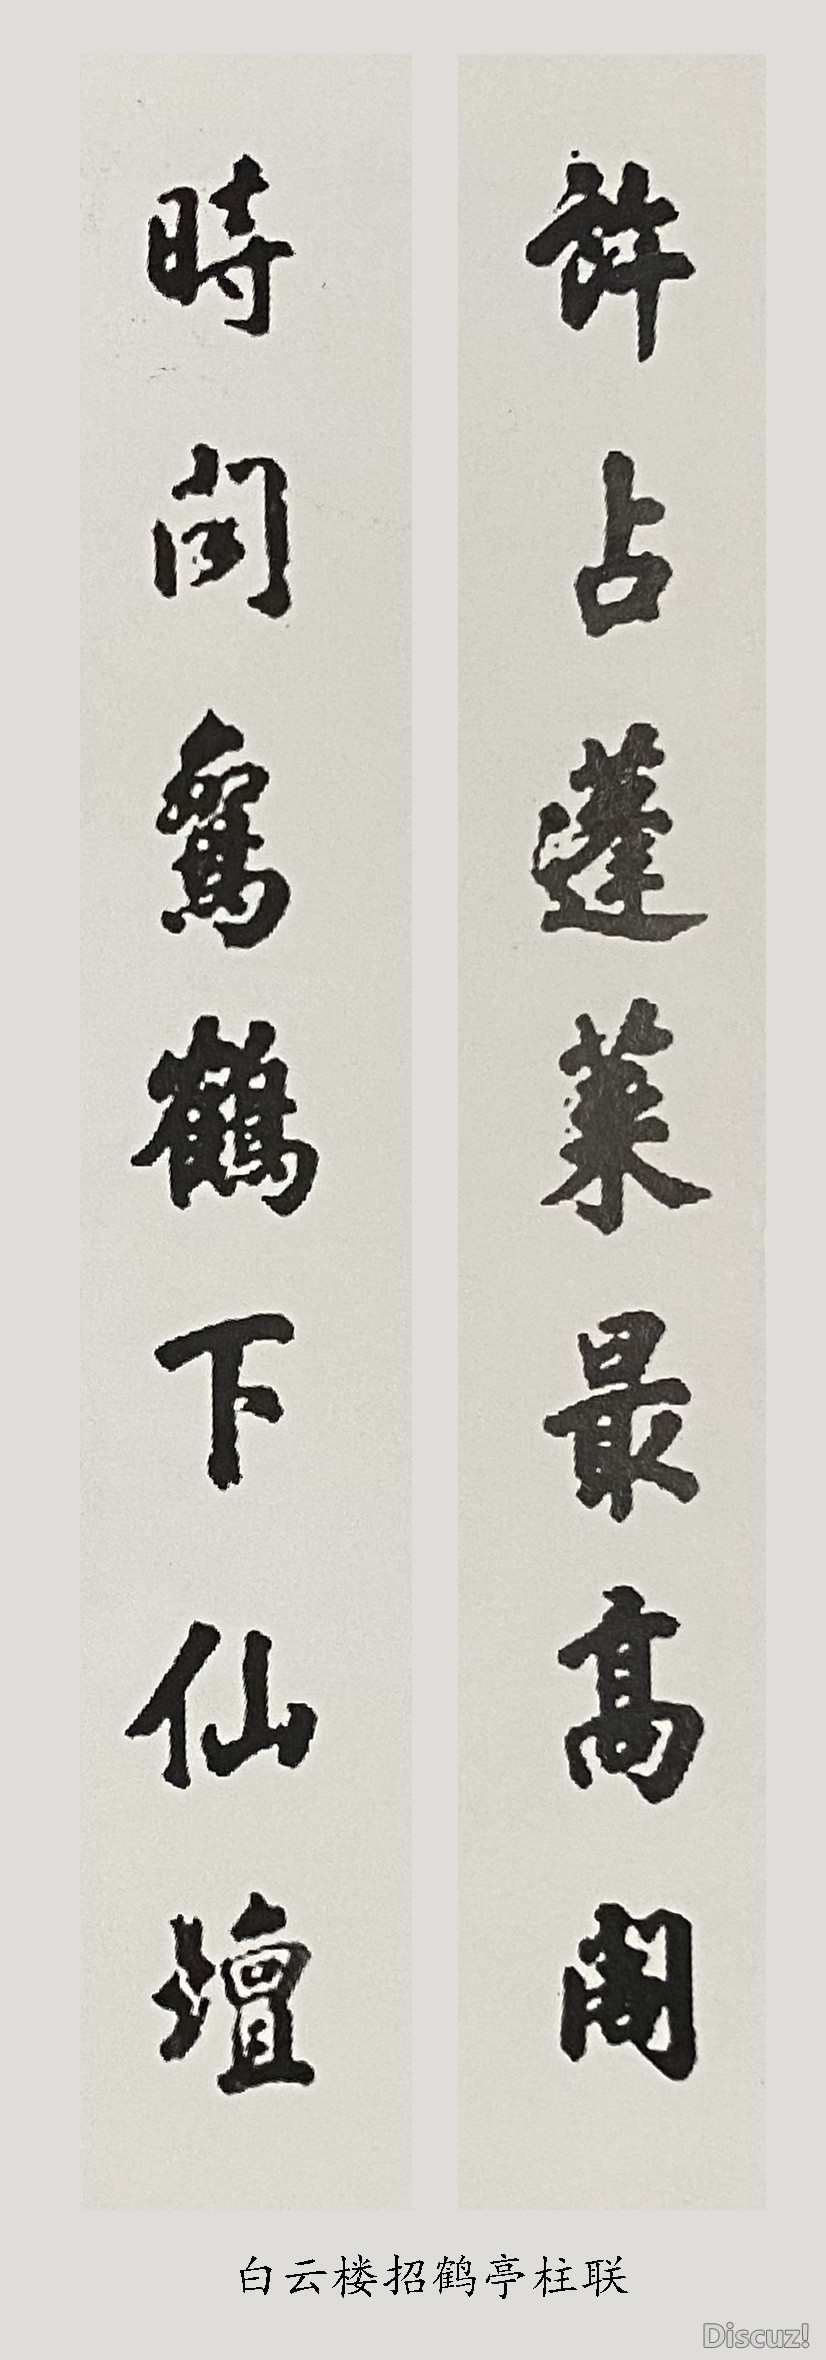 許占蓬萊最高閣
時聞鸞鶴下仙壇
白云楼招鹤亭柱联
Discuz!